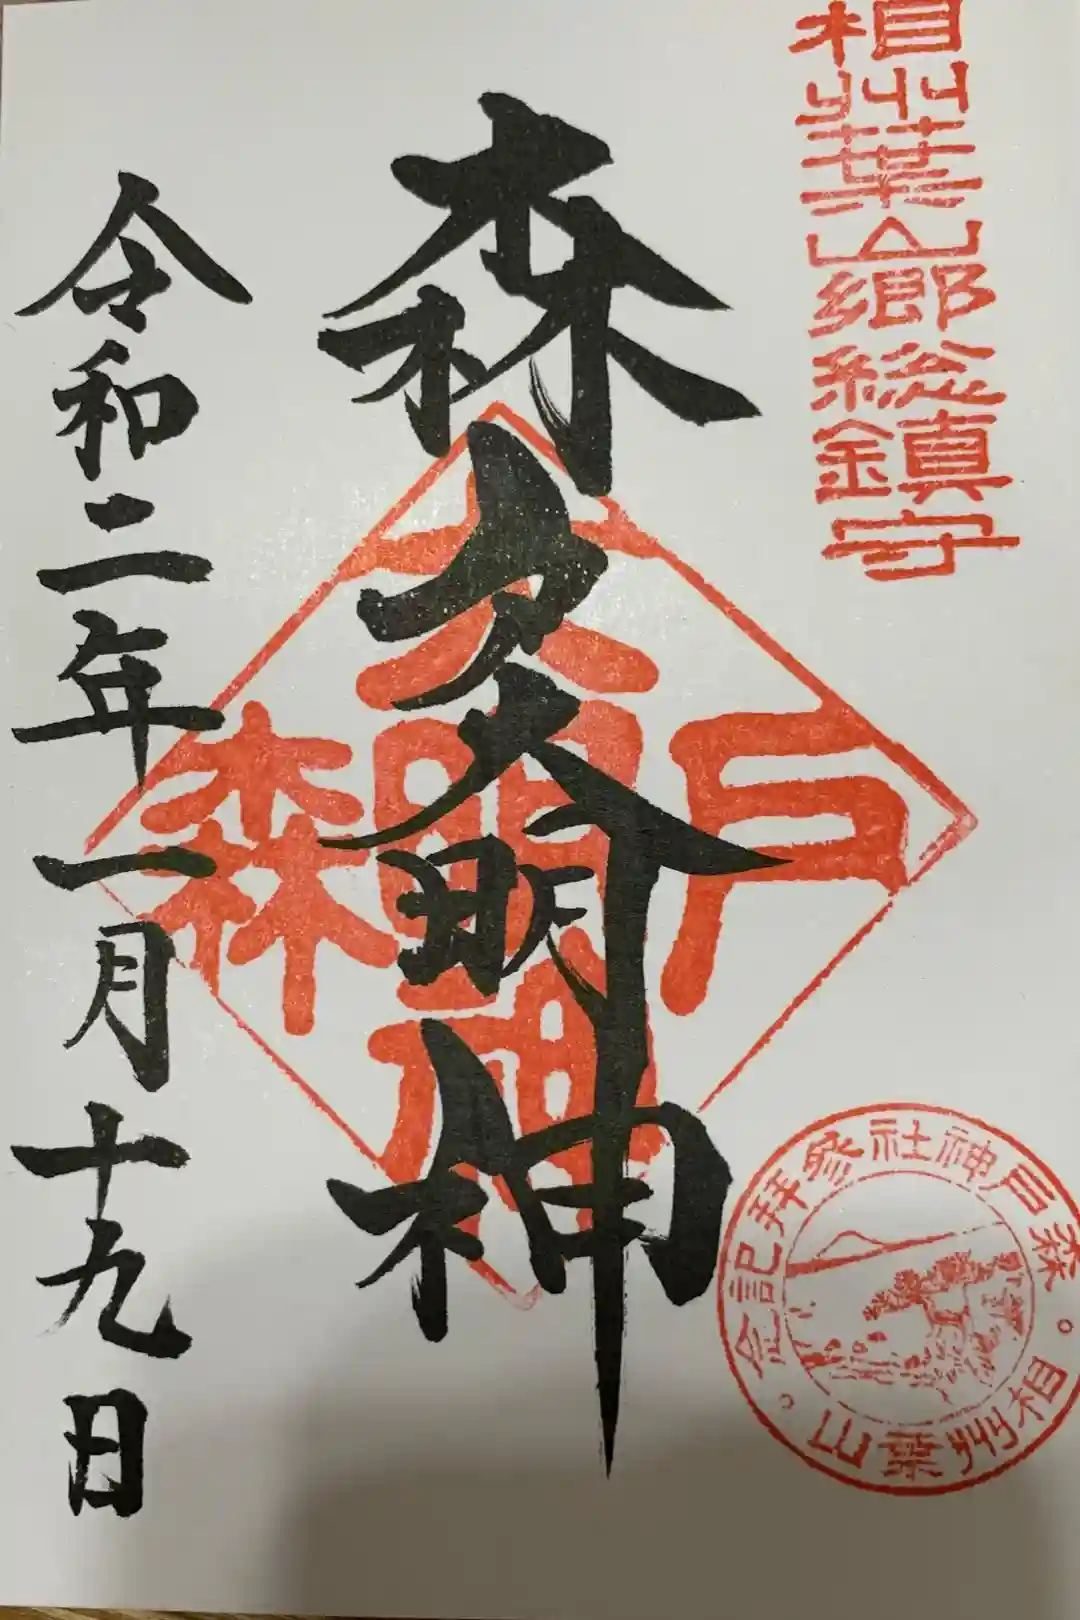 相州葉山郷総鎮守
森戸大明神
森戸大明神
令和二年一月十九日
森戸神社参拝記念。
相州葉山。